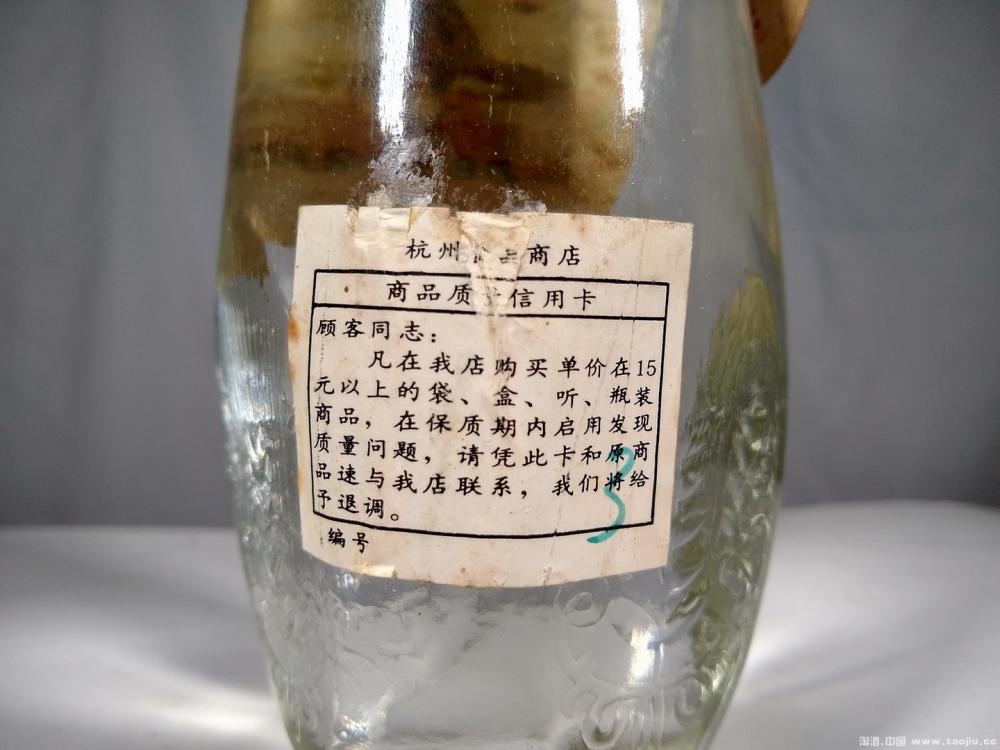 杭州品商店
商品质信用卡
顾客同志：
凡在我店购买单价在15
元以上的袋、盒、听、瓶装
商品，在保质期内启用发现
质量问题，请凭此卡和原商
品速与我店联系，我们将给
予退调。
编号
3
淘酒.中国 www.taojiu.cc